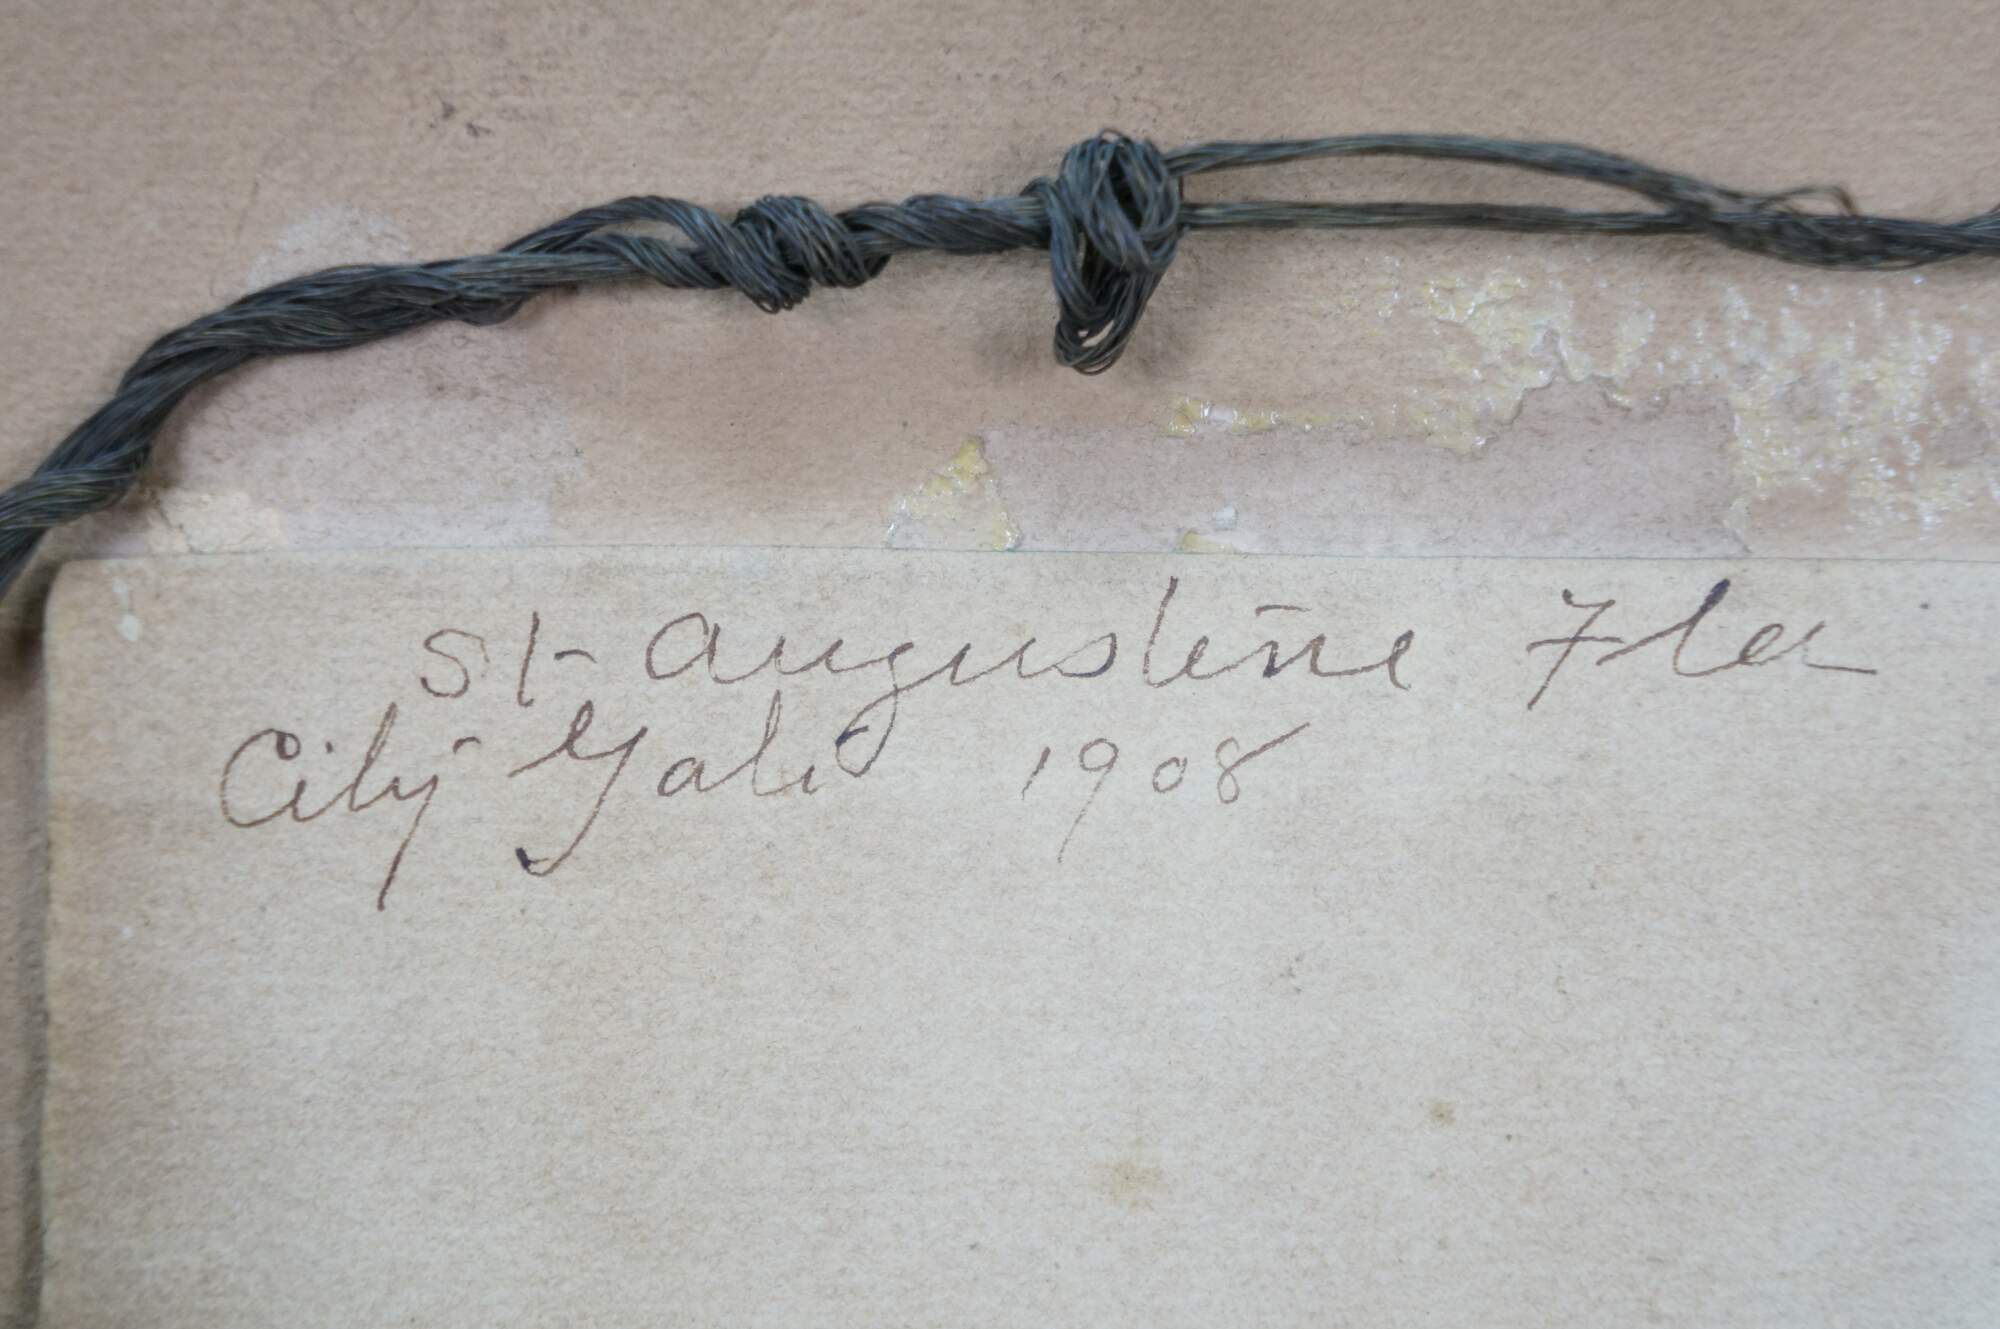 St Augustine Fla
City Gate 1908